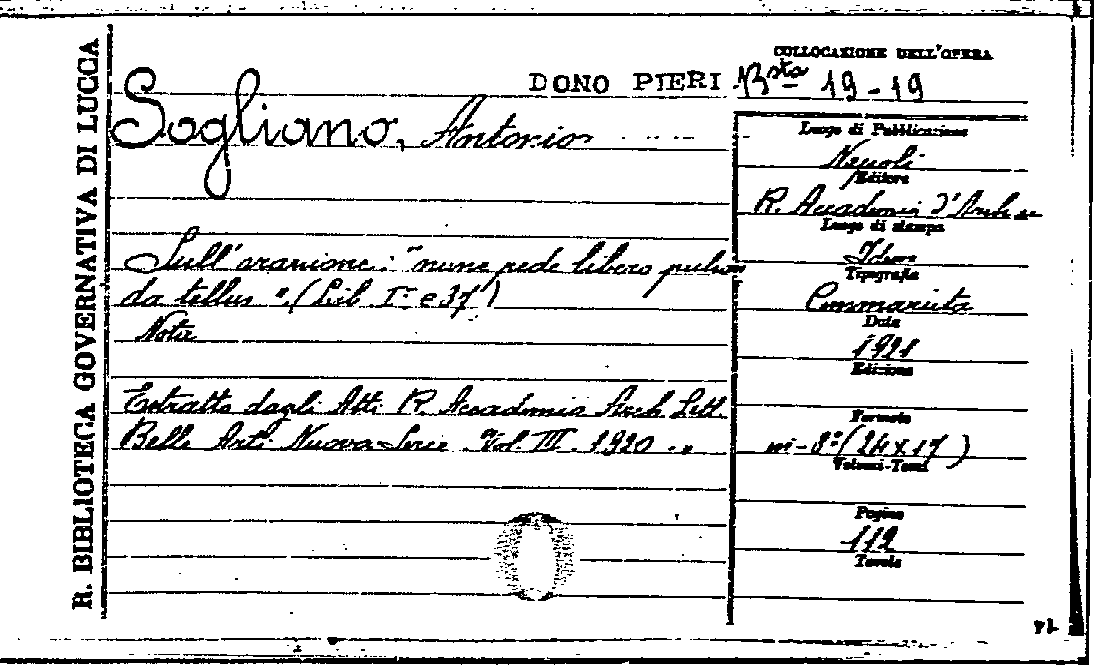 R. BIBLIOTECA GOVERNATIVA DI LUCCA
DONO PIERI
Sogliano, Antonio
Sull'orazione: "nunc pede libero pulsan
da tellus". (Lib I° c 37)
Nota
Estratto dagli Atti R. Accademia Arch Lett
Belle Arti Nuova Serie. Vol. III. 1920..
COLLOCAZIONE DELL'OPERA
Bsta 19-19
Luogo di Pubblicazione
Napoli
Editore
R. Accademia d'Arch
Luogo di stampa
Idem
Tipografia
Cimmaruta
Data
1921
Edizione
Formato
in-8°(24x17)
Volumi-Tomi
Pagine
112
Tavole